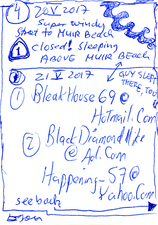 4
20 V 2017
Super windy
start to MUIR BEACH
1 closed! Sleeping
ABOVE MUIR BEACH
21 V 2017
GUY SLEPT THERE, TOO
1 BleakHouse69@
Hotmail.Com
2 BlackDiamondMike
@ Aol.Com
Happening_57@
Yahoo.Com
see back